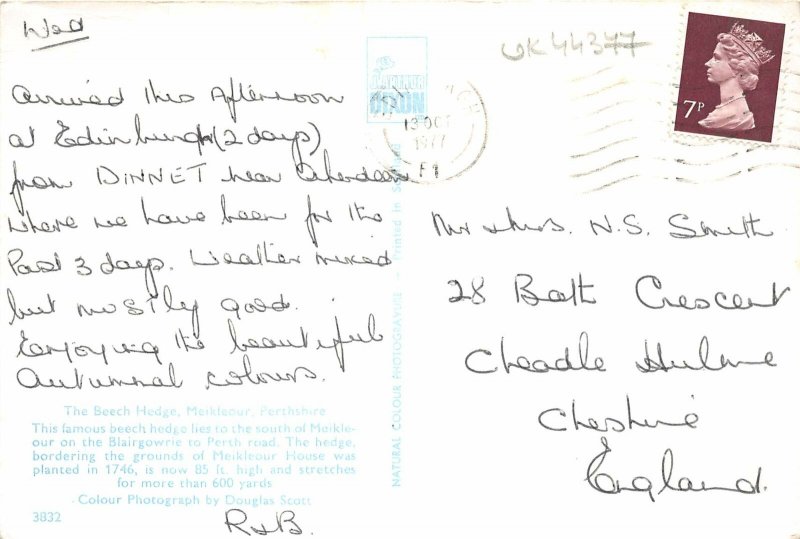 Wed
Arrived this Afternoon
at Edinburgh (2 days)
from DINNET near Aberdeen
where we have been for the
Past 3 days. Weather mixed
but mostly good.
Enjoying the beautiful
Autumnal colours.
The Beech Hedge, Meikleour, Perthshire
This famous beech hedge lies to the south of Meikle-
our on the Blairgowrie to Perth road. The hedge,
bordering the grounds of Meikleour House was
planted in 1746, is now 85 ft. high and stretches
for more than 600 yards
Colour Photograph by Douglas Scott
3832
R&B.
NATURAL COLOUR PHOTOGRAVURE - Printed in Scotland
DIXON
13 OCT
1977
UK44377
7P
Mr & Mrs. N.S. Smith
28 Bath Crescent
Cheadle Hulme
Cheshire
England.